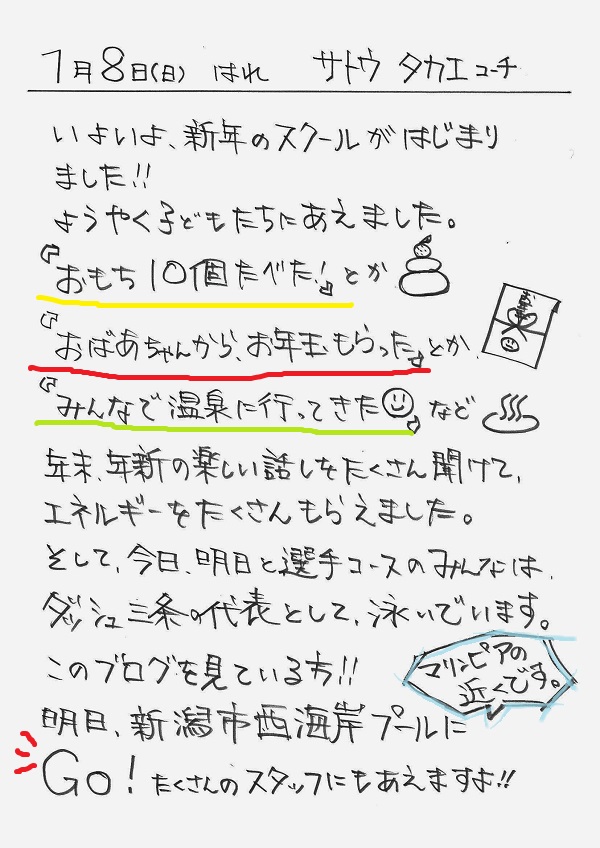 1月8日(日) はれ サトウ タカエコーチ
いよいよ、新年のスクールがはじまり
ました!!
ようやく子どもたちにあえました。
『おもち10個たべた!』とか
『おばあちゃんから、お年玉もらった』とか、
『みんなで温泉に行ってきた』など
年末、年新の楽しい話しをたくさん聞けて、
エネルギーをたくさんもらえました。
そして、今日、明日と選手コースのみんなは、
ダッシュ三条の代表として、泳いでいます。
このブログを見ている方!!
マリンピアの
近くです。
明日、新潟市西海岸プールに
Go! たくさんのスタッフにもあえますよ!!